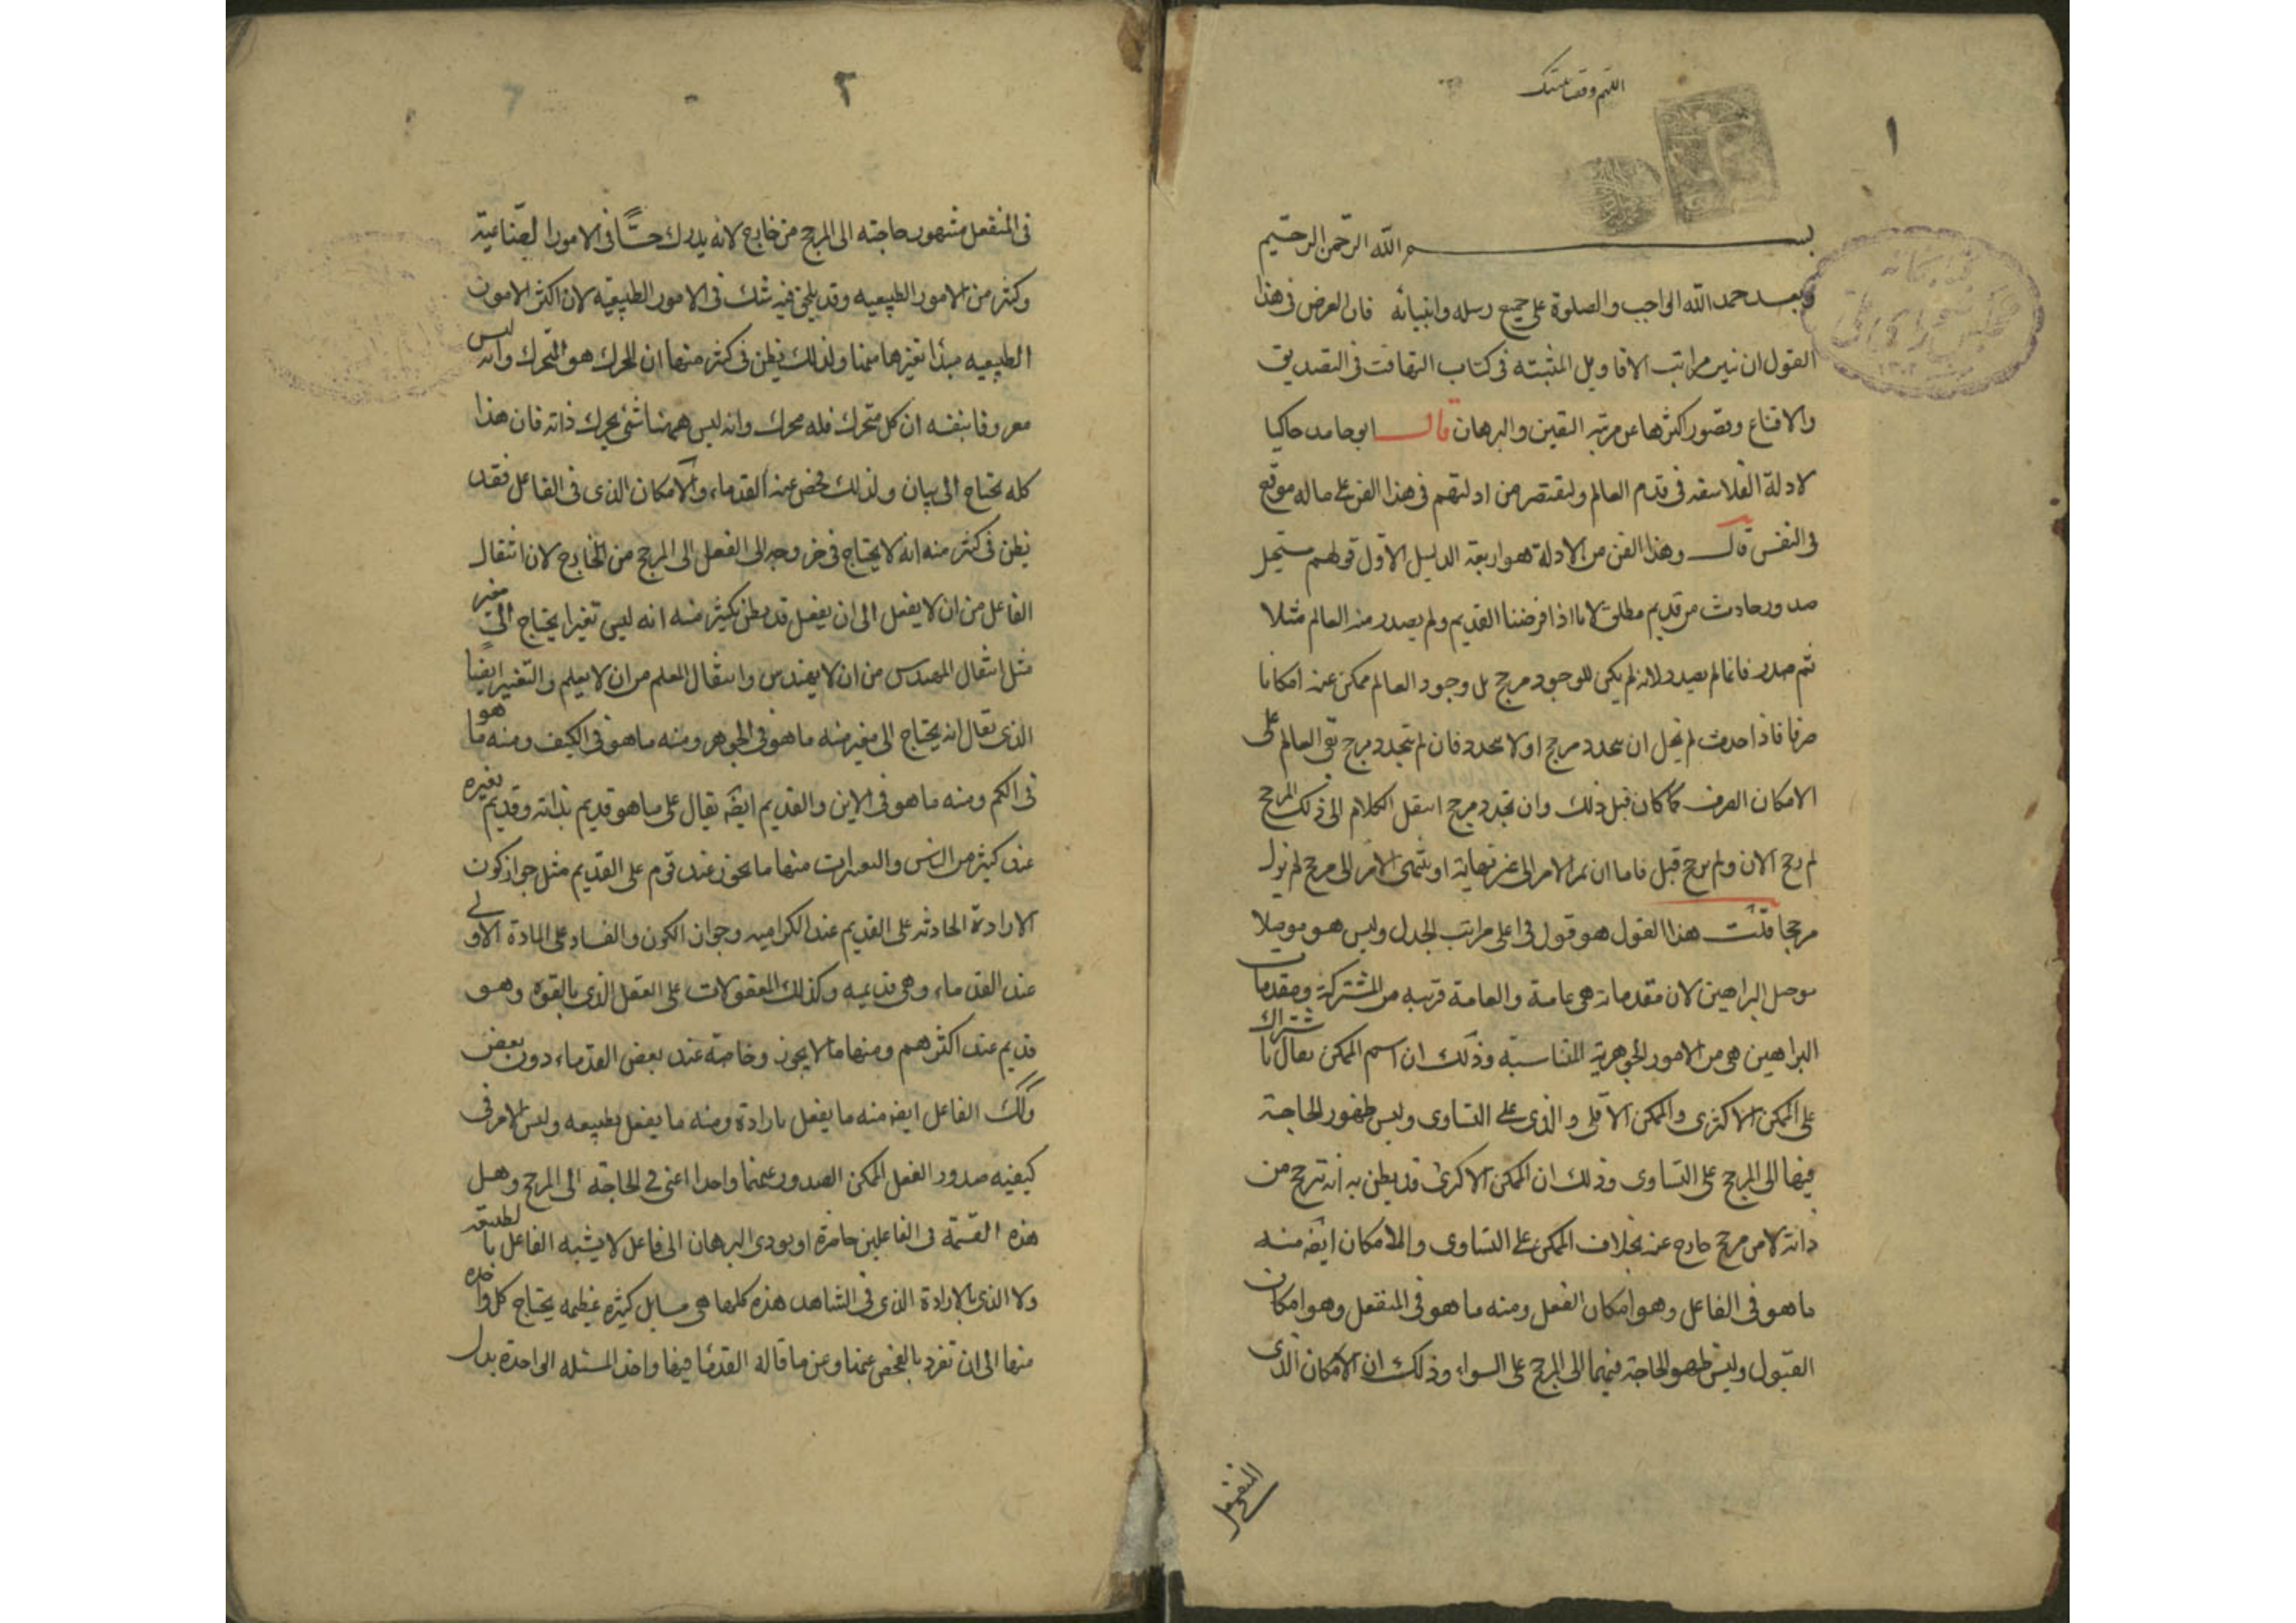 اللهم وفقنا بمنك
١
بسم الله الرحمن الرحيم
وبعد حمد الله الواجب والصلوة على جميع رسله وانبيائه فان الغرض فى هذا
القول ان نبين مراتب الاقاويل المثبتة فى كتاب التهافت فى التصديق
والاقناع وقصور اكثرها عن مرتبة اليقين والبرهان قال ابو حامد حاكيا
لادلة الفلاسفه فى قدم العالم ولنقتصر من ادلتهم فى هذا الفن على ماله موقع
فى النفس قال وهذا الفن من الادلة هو اربعة الدليل الاول قولهم يستحيل
صدور حادث من قديم مطلق لانا اذا فرضنا القديم ولم يصدر منه العالم مثلا
ثم صدر فانما لم يصدر لانه لم يكن للوجود مرجح بل وجود العالم ممكن عنه امكانا
صرفا فاذا حدث لم يخل ان تجدد مرجح او لا يتجدد فان لم يتجدد مرجح بقى العالم على
الامكان الصرف كما كان قبل ذلك وان تجدد مرجح انتقل الكلام الى ذلك المرجح
لم رجح الان ولم يرجح قبل فاما ان يمر الامر الى غير نهاية او ينتهى الامر الى مرجح لم يزل
مرجحا قلت هذا القول هو قول فى اعلى مراتب الجدل وليس هو موصلا
موصل البراهين لان مقدماته هى عامة والعامة قريبه من المشتركة ومقدمات
البراهين هى من الامور الجوهرية المتناسبة وذلك ان اسم الممكن يقال باشتراك
على الممكن الاكثرى والممكن الاقلى والذى على التساوى وليس ظهور الحاجة
فيها الى المرجح على التساوى وذلك ان الممكن الاكثرى قد يظن به انه يترجح من
ذاته لا من مرجح خارج عنه بخلاف الممكن على التساوى والامكان ايضه منه
ما هو فى الفاعل وهو امكان الفعل ومنه ما هو فى المنفعل وهو امكان
القبول وليس ظهور الحاجة فيهما الى المرجح على السواء وذلك ان الامكان الذى
المنفعل
٢
فى المنفعل مشهور حاجته الى المرجح من خارج لانه يدرك حسًا فى الامور الصناعية
وكثير من الامور الطبيعيه وقد يلحق فيه شك فى الامور الطبيعيه لان اكثر الامور
الطبيعيه مبدأ تغيرها منها ولذلك يظن فى كثير منها ان المحرك هو المتحرك وانه ليس
معروفا بنفسه ان كل متحرك فله محرك وانه ليس ههنا شئ يحرك ذاته فان هذا
كله يحتاج الى بيان ولذلك فحص عنه القدماء والامكان الذى فى الفاعل فقد
يظن فى كثير منه انه لا يحتاج فى خروجه الى الفعل الى المرجح من الخارج لان انتقال
الفاعل من ان لا يفعل الى ان يفعل قد يظن بكثير منه انه ليس تغيرا يحتاج الى مغير
مثل انتقال المهندس من ان لا يهندس وانتقال المعلم من ان لا يعلم والتغير ايضا
الذى يقال انه يحتاج الى مغير منه ما هو فى الجوهر ومنه ما هو فى الكيف ومنه ما هو
فى الكم ومنه ما هو فى الاين والقديم ايضه يقال على ما هو قديم بذاته وقديم بغيره
عند كثير من الناس والتغيرات منها ما يجوز عند قوم على القديم مثل جواز كون
الارادة الحادثه على القديم عند الكراميه وجواز الكون والفساد على المادة الاولى
عند القدماء وهى قديمه وكذلك المعقولات على العقل الذى بالقوه وهو
قديم عند اكثرهم ومنها ما لا يجوز وخاصة عند بعض القدماء دون بعض
وكك الفاعل ايضه منه ما يفعل بارادة ومنه ما يفعل بطبيعه وليس الامر فى
كيفيه صدور الفعل الممكن الصدور عنهما واحدا اعنى فى الحاجة الى المرجح وهل
هذه القسمة فى الفاعلين حاصرة او يودى البرهان الى فاعل لا يشبه الفاعل بالطبيعه
ولا الذى بالارادة الذى فى الشاهد هذه كلها هى مسايل كثيره عظيمه يحتاج كل واحده
منها الى ان تفرد بالفحص عنها وعن ما قاله القدما فيها واخذ المسئله الواحدة بدل